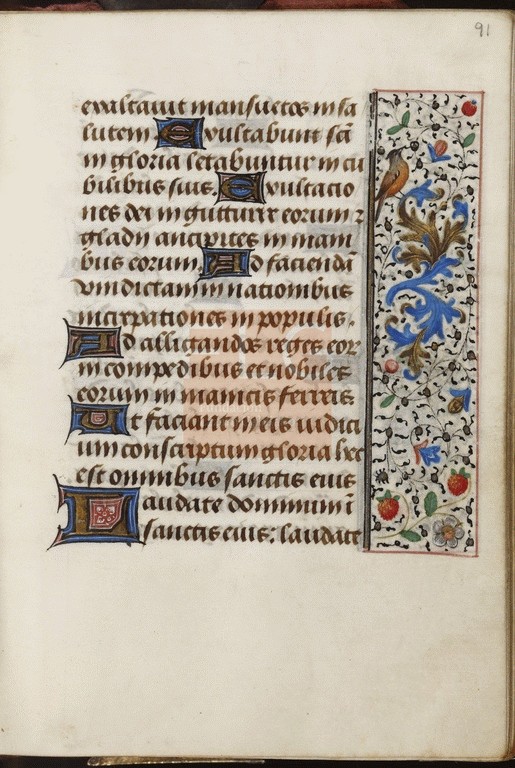 91
exaltavit mansuetos in sa
lutem. Exultabunt sc̄i
in gloria letabuntur in cu
bilibus suis. Exultatio
nes dei in gutture eorum ⁊
gladii ancipites in mani
bus eorum. Ad faciendā
vindictam in nationibus
increpationes in populis.
Ad alligandos reges eor
in compedibus et nobiles
eorum in manicis ferreis
Ut faciant in eis iudici
um conscriptum gloria hec
est omnibus sanctis eius
Laudate dominum ī
sanctis eius: laudate